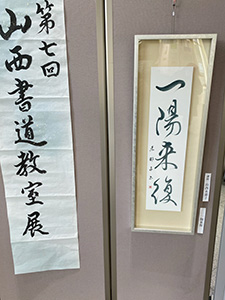 第七回
山西書道教室展
一陽来復